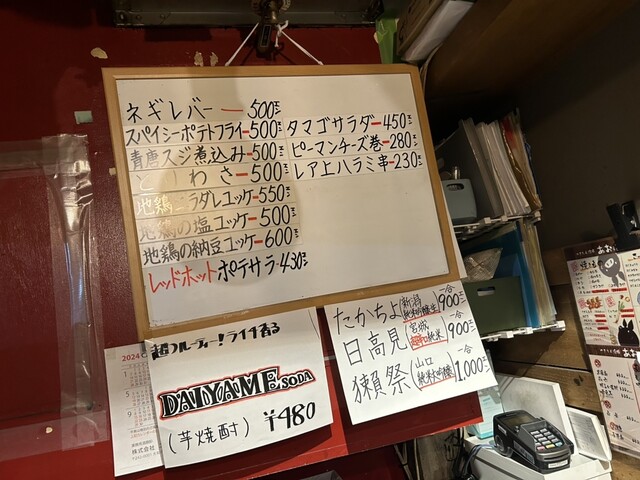 ネギレバー ー 500
スパイシーポテトフライー500
青唐スジ煮込みー500
とりわさー500
地鶏ユッケー550
地鶏の塩ユッケー500
地鶏の納豆ユッケー600
レッドホットポテサラー430
タマゴサラダー450
ピーマンチーズ巻ー280
レア上ハラミ串ー230
超フルーティー!ライチ香る
DAIYAME SODA
(芋焼酎) ¥480
たかちよ(新潟 一合900
日高見(宮城 純米 一合900
獺祭(山口 一合1.000
2024
株式会社